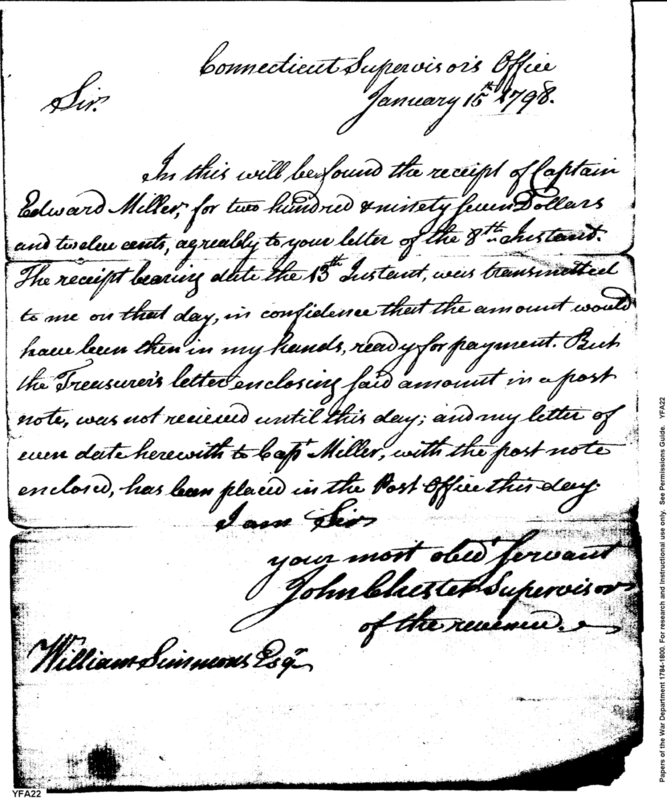 Connecticut Supervisor's Office
Sir.
January 15th 1798.
In this will be found the receipt of Captain
Edward Miller, for two hundred & ninety seven Dollars
and twelve cents, agreably to your letter of the 8th Instant.
The receipt bearing date the 13th Instant, was transmitted
to me on that day, in confidence that the amount would
have been then in my hands, ready for payment. But
the Treasurer's letter enclosing said amount in a post
note, was not recieved until this day; and my letter of
even date herewith to Capt Miller, with the post note
enclosed, has been placed in the Post Office this day.
I am Sir
your most obedt servant
John Chester Supervisor
of the revenue.
William Simmons Esqr
YFA22
Papers of the War Department 1784-1800. For research and instructional use only. See Permissions Guide. YFA22